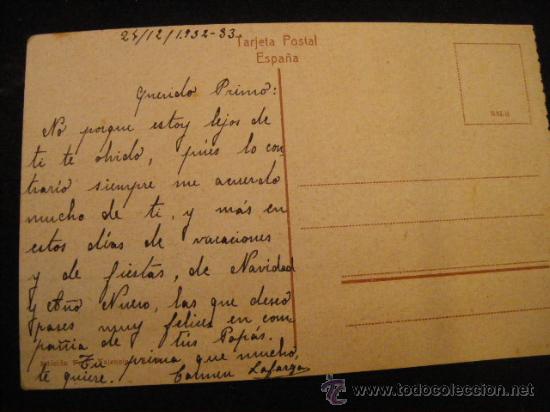 24/12/1.932-33.
Tarjeta Postal
España
Querido Primo:
No porque estoy lejos de
ti te olvido, pues lo con
trario siempre me acuerdo
mucho de ti, y más en
estos días de vacaciones
y de fiestas, de Navidad
y Año Nuevo, las que deseo
pases muy felices en com
pañia de tús Papás.
Tu prima que mucho,
te quiere. Carmen Lafarga
todocoleccion.net